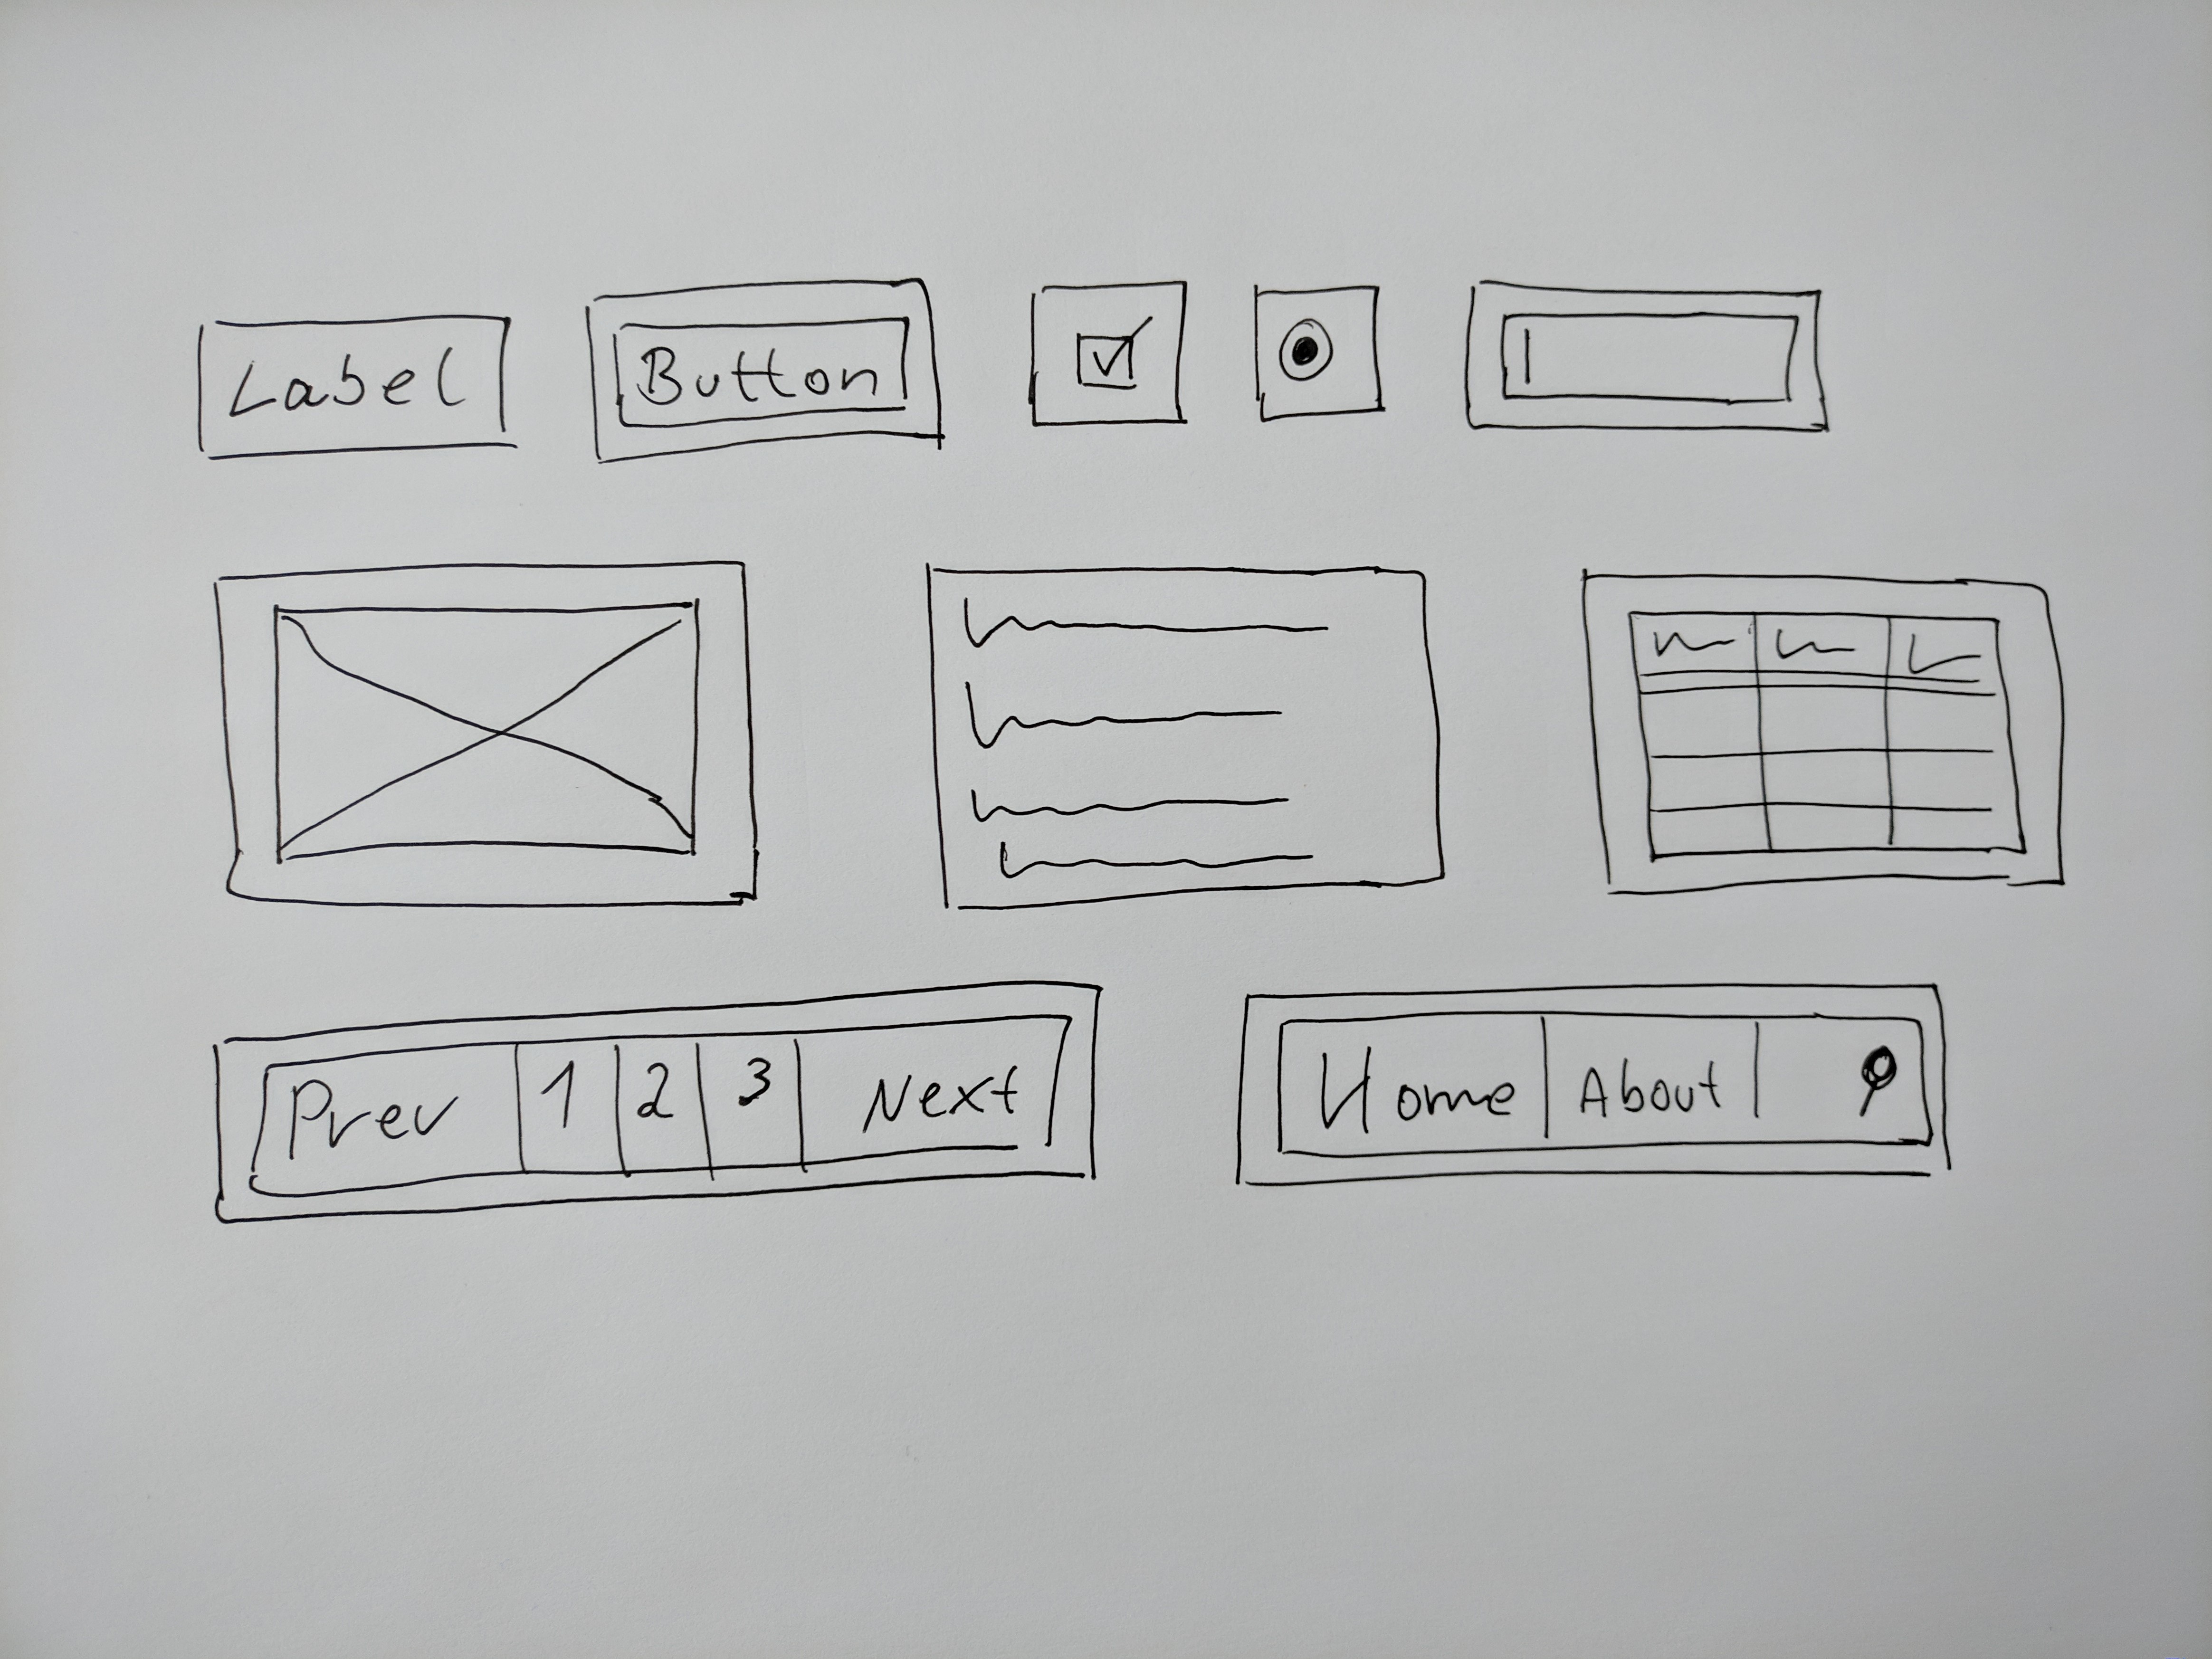 Label Button
Prev 1 2 3 Next Home About